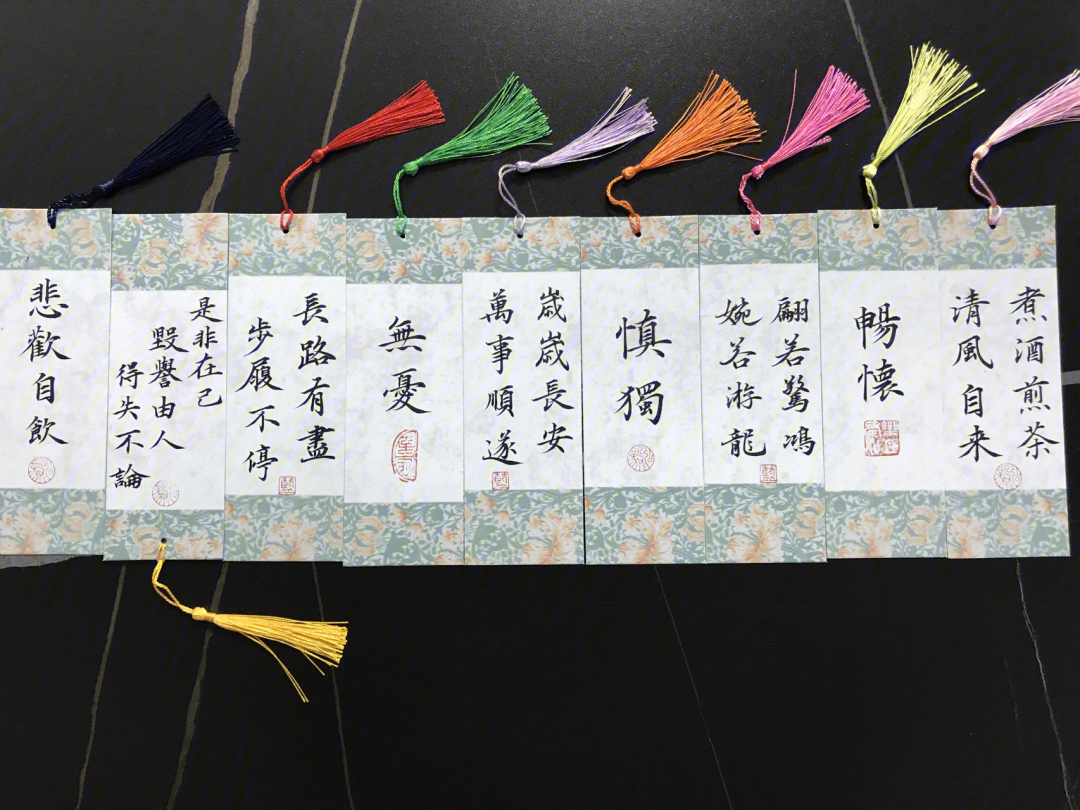 煮酒煎茶
清風自来
暢懐
翩若驚鴻
婉若游龍
慎獨
歳歳長安
萬事順遂
無憂
長路有盡
步履不停
是非在己
毀譽由人
得失不論
悲歡自飲